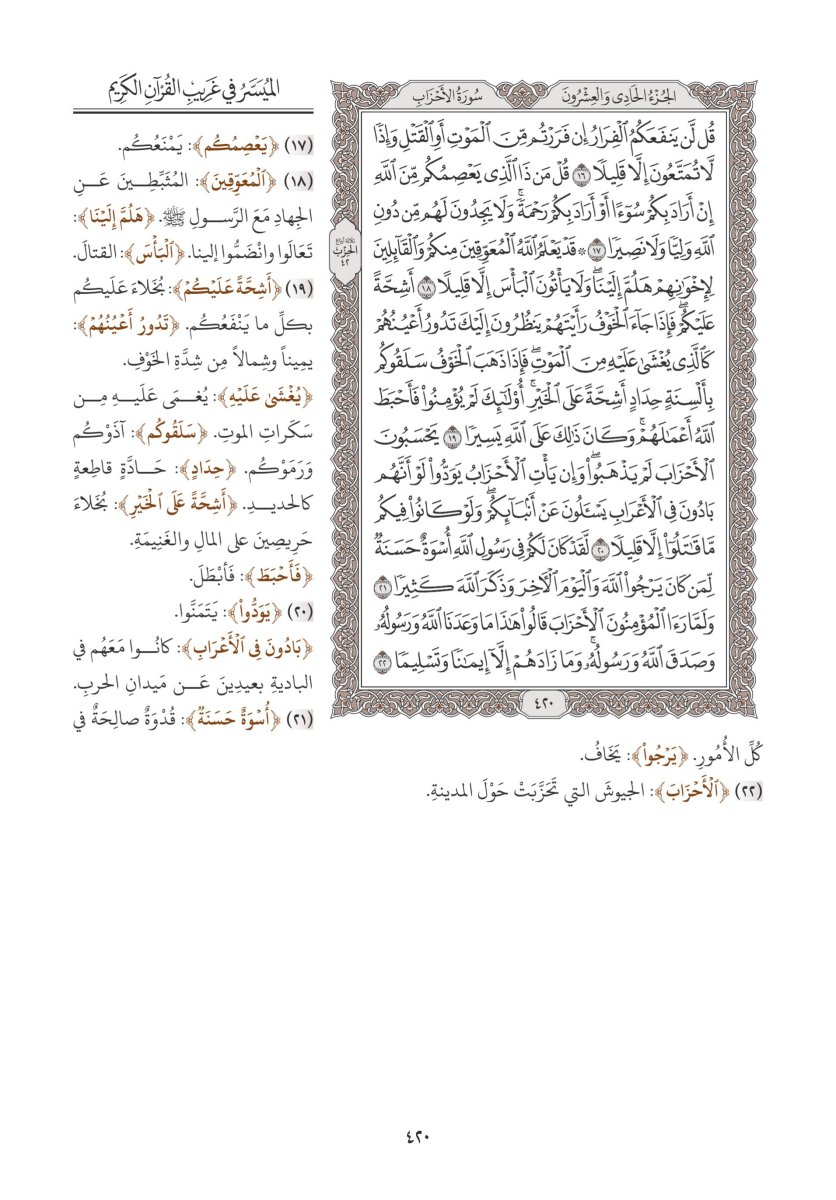 الجُزْءُ الحَادِي وَالعِشْرُونَ
سُورَةُ الأَحْزَابِ
قُل لَّن يَنفَعَكُمُ ٱلۡفِرَارُ إِن فَرَرۡتُم مِّنَ ٱلۡمَوۡتِ أَوِ ٱلۡقَتۡلِ وَإِذٗا
لَّا تُمَتَّعُونَ إِلَّا قَلِيلٗا ١٦ قُلۡ مَن ذَا ٱلَّذِي يَعۡصِمُكُم مِّنَ ٱللَّهِ
إِنۡ أَرَادَ بِكُمۡ سُوٓءًا أَوۡ أَرَادَ بِكُمۡ رَحۡمَةٗۚ وَلَا يَجِدُونَ لَهُم مِّن دُونِ
ٱللَّهِ وَلِيّٗا وَلَا نَصِيرٗا ١٧ ۞ قَدۡ يَعۡلَمُ ٱللَّهُ ٱلۡمُعَوِّقِينَ مِنكُمۡ وَٱلۡقَآئِلِينَ
لِإِخۡوَٰنِهِمۡ هَلُمَّ إِلَيۡنَاۖ وَلَا يَأۡتُونَ ٱلۡبَأۡسَ إِلَّا قَلِيلًا ١٨ أَشِحَّةً
عَلَيۡكُمۡۖ فَإِذَا جَآءَ ٱلۡخَوۡفُ رَأَيۡتَهُمۡ يَنظُرُونَ إِلَيۡكَ تَدُورُ أَعۡيُنُهُمۡ
كَٱلَّذِي يُغۡشَىٰ عَلَيۡهِ مِنَ ٱلۡمَوۡتِۖ فَإِذَا ذَهَبَ ٱلۡخَوۡفُ سَلَقُوكُم
بِأَلۡسِنَةٍ حِدَادٍ أَشِحَّةً عَلَى ٱلۡخَيۡرِۚ أُوْلَٰٓئِكَ لَمۡ يُؤۡمِنُواْ فَأَحۡبَطَ
ٱللَّهُ أَعۡمَٰلَهُمۡۚ وَكَانَ ذَٰلِكَ عَلَى ٱللَّهِ يَسِيرٗا ١٩ يَحۡسَبُونَ
ٱلۡأَحۡزَابَ لَمۡ يَذۡهَبُواْۖ وَإِن يَأۡتِ ٱلۡأَحۡزَابُ يَوَدُّواْ لَوۡ أَنَّهُم
بَادُونَ فِي ٱلۡأَعۡرَابِ يَسۡـَٔلُونَ عَنۡ أَنۢبَآئِكُمۡۖ وَلَوۡ كَانُواْ فِيكُم
مَّا قَٰتَلُوٓاْ إِلَّا قَلِيلٗا ٢٠ لَّقَدۡ كَانَ لَكُمۡ فِي رَسُولِ ٱللَّهِ أُسۡوَةٌ حَسَنَةٞ
لِّمَن كَانَ يَرۡجُواْ ٱللَّهَ وَٱلۡيَوۡمَ ٱلۡأٓخِرَ وَذَكَرَ ٱللَّهَ كَثِيرٗا ٢١
وَلَمَّا رَءَا ٱلۡمُؤۡمِنُونَ ٱلۡأَحۡزَابَ قَالُواْ هَٰذَا مَا وَعَدَنَا ٱللَّهُ وَرَسُولُهُۥ
وَصَدَقَ ٱللَّهُ وَرَسُولُهُۥۚ وَمَا زَادَهُمۡ إِلَّآ إِيمَٰنٗا وَتَسۡلِيمٗا ٢٢
٤٢٠
الحِزْبُ
٤٢
المُيَسَّرُ فِي غَرِيبِ القُرْآنِ الكَرِيمِ
(١٧) ﴿يَعۡصِمُكُم﴾: يَمْنَعُكُم.
(١٨) ﴿ٱلۡمُعَوِّقِينَ﴾: المُثَبِّطِينَ عَنِ
الجِهادِ مَعَ الرَّسولِ ﷺ. ﴿هَلُمَّ إِلَيۡنَا﴾:
تَعَالَوا وانْضَمُّوا إلينا. ﴿ٱلۡبَأۡسَ﴾: القتالَ.
(١٩) ﴿أَشِحَّةً عَلَيۡكُمۡ﴾: بُخَلاءَ عَلَيكُم
بكلِّ ما يَنْفَعُكُم. ﴿تَدُورُ أَعۡيُنُهُمۡ﴾:
يميناً وشِمالاً مِن شِدَّةِ الخَوْفِ.
﴿يُغۡشَىٰ عَلَيۡهِ﴾: يُغْمَى عَلَيهِ مِن
سَكَراتِ الموتِ. ﴿سَلَقُوكُم﴾: آذَوْكُم
وَرَمَوْكُم. ﴿حِدَادٍ﴾: حَادَّةٍ قاطِعةٍ
كالحديدِ. ﴿أَشِحَّةً عَلَى ٱلۡخَيۡرِ﴾: بُخَلاءَ
حَرِيصِينَ على المالِ والغَنِيمَةِ.
﴿فَأَحۡبَطَ﴾: فَأَبْطَلَ.
(٢٠) ﴿يَوَدُّواْ﴾: يَتَمَنَّوا.
﴿بَادُونَ فِي ٱلۡأَعۡرَابِ﴾: كانُوا مَعَهُم في
الباديةِ بعيدِينَ عَن مَيدانِ الحربِ.
(٢١) ﴿أُسۡوَةٌ حَسَنَةٞ﴾: قُدْوَةٌ صالِحَةٌ في
كُلِّ الأُمُورِ. ﴿يَرۡجُواْ﴾: يَخَافُ.
(٢٢) ﴿ٱلۡأَحۡزَابَ﴾: الجيوشَ التي تَحَزَّبَتْ حَوْلَ المدينةِ.
٤٢٠